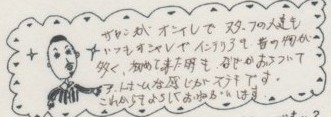 サロンが オシャレで スタッフの人達も
いつもオシャレで インテリアも 昔の物が
多く、初めて来た時も なぜかおちついて
アットホームな感じがステキです。
これからもよろしくおねがいします